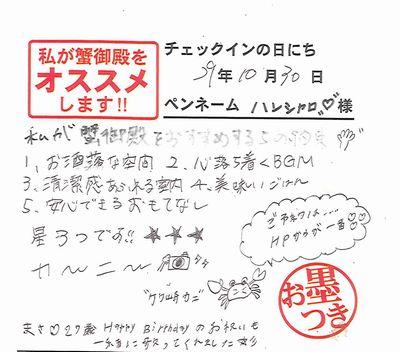 私が蟹御殿を
オススメ
します!!
チェックインの日にち
29年10月30日
ペンネーム ハレシャロ♡様
私が蟹御殿をおすすめする5の約束
1、お洒落な空間 2、心落ち着くBGM
3、清潔感あふれる室内 4、美味しいごはん
5、安心できるおもてなし
星3つです!! ★★★
カーニー
ご予約は…
HPからが一番♡♡
"ケガ崎カニ"
お墨つき
まさ♡27歳 Happy Birthdayのお祝いも
一緒に祝ってくれました